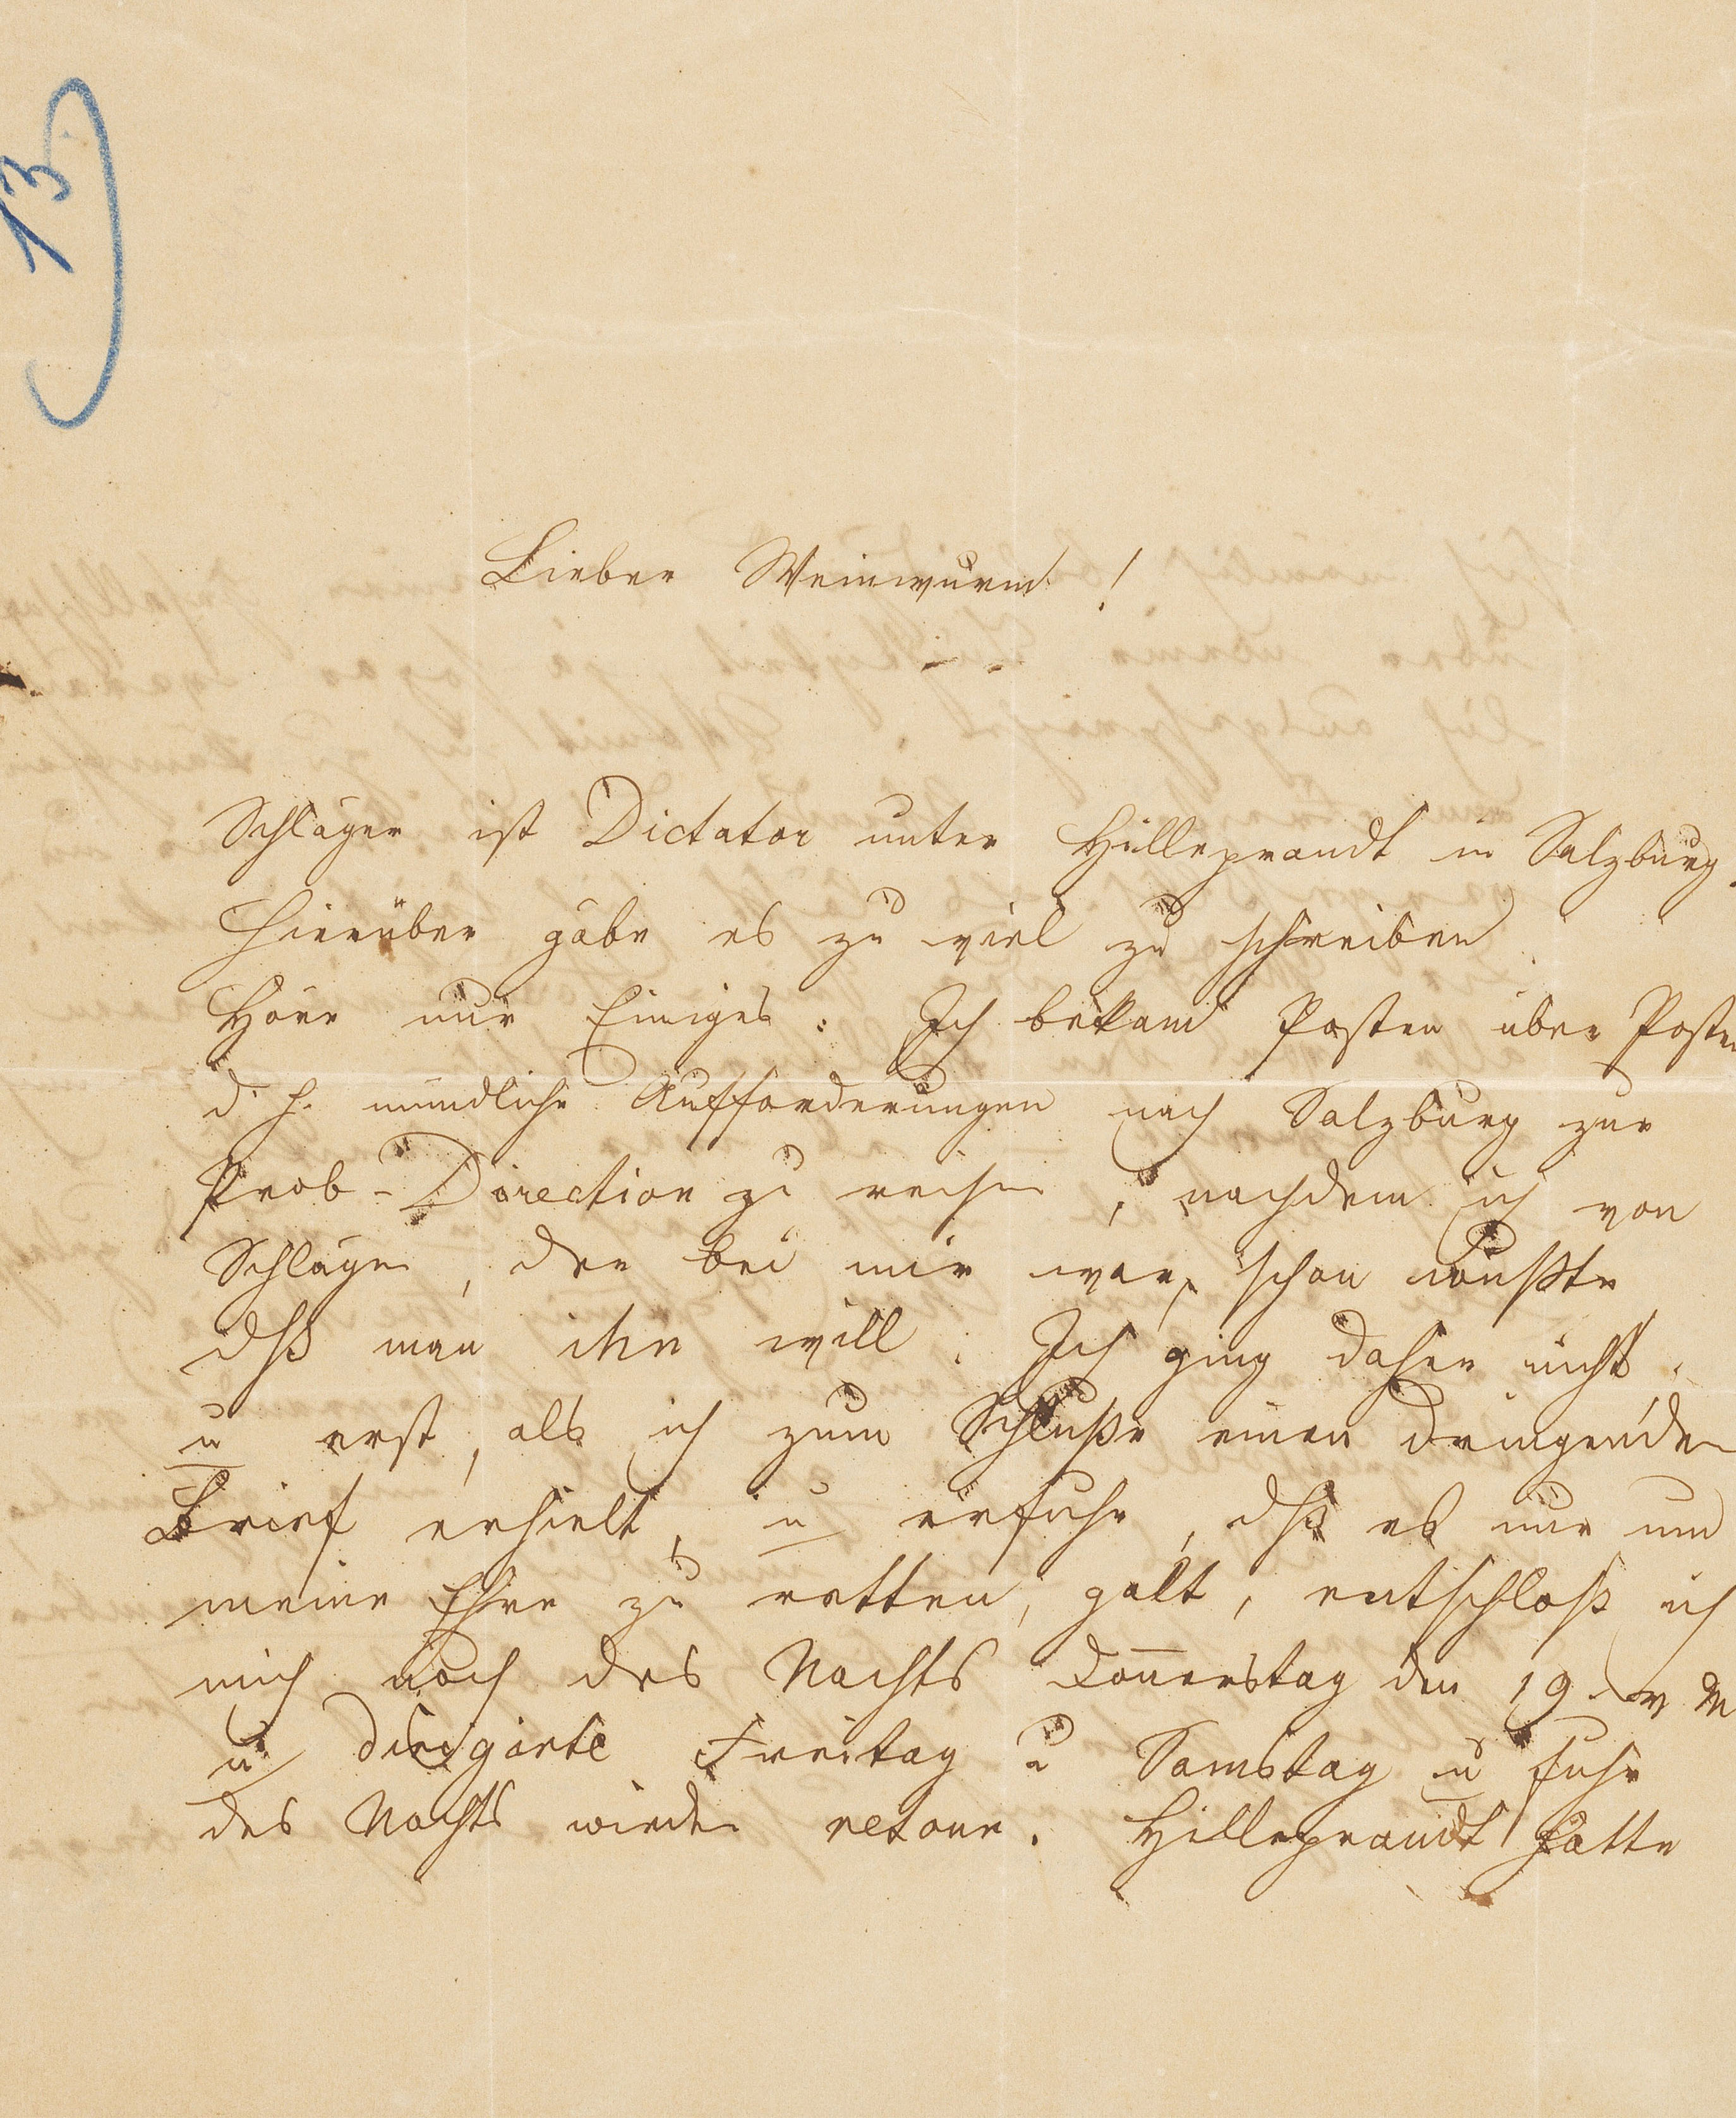 13
Lieber Weinwurm!
Schläger ist Dictator unter Hilleprandt in Salzburg.
Hierüber gäbe es zu viel zu schreiben.
Höre nur Einiges: Ich bekam Posten über Posten
d. h. mündliche Aufforderungen nach Salzburg zur
Prob-Direction zu reisen, nachdem ich von
Schläger, der bei mir war, schon wußte
dß man ihn will. Ich ging daher nicht.
u erst, als ich zum Schluße einen dringenden
Brief erhielt, u erfuhr, dß es nur um
meine Ehre zu retten, galt, entschloß ich
mich noch des Nachts Donnerstag den 19. v M
u dirigirte Freitag u Samstag u fuhr
des Nachts wieder retour. Hilleprandt hatte